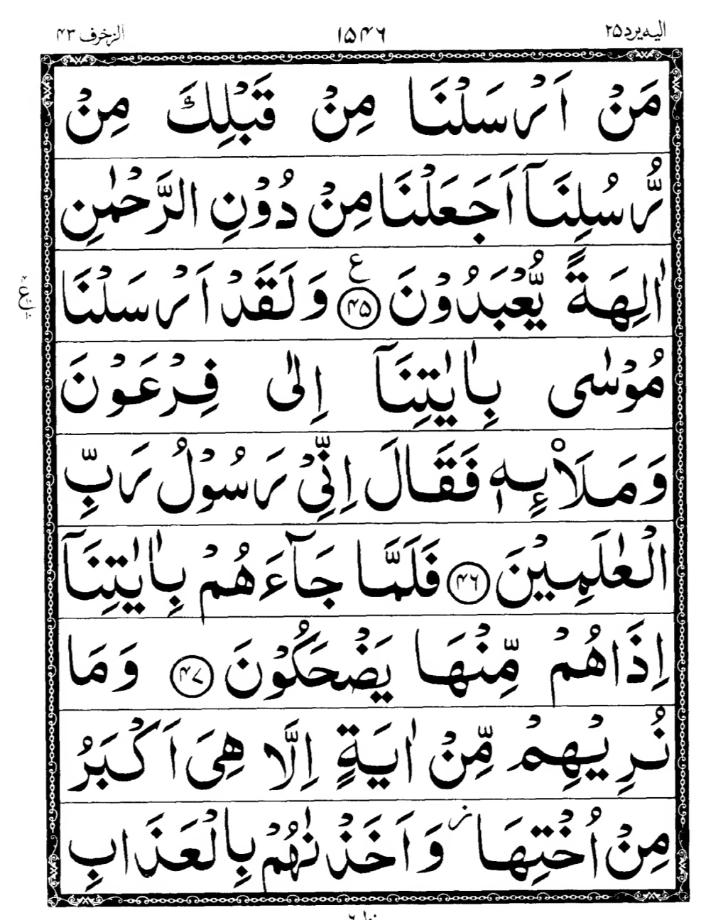 الیه یرد ۲۵ ۱۵۴۶ الزخرف ۴۳
مَنْ اَرْسَلْنَا مِنْ قَبْلِكَ مِنْ
رُّسُلِنَاۤ اَجَعَلْنَا مِنْ دُوْنِ الرَّحْمٰنِ
اٰلِهَةً یُّعْبَدُوْنَ ﴿۴۵﴾ ع وَلَقَدْ اَرْسَلْنَا
مُوْسٰی بِاٰیٰتِنَاۤ اِلٰی فِرْعَوْنَ
وَمَلَا۟ئِهٖ فَقَالَ اِنِّیْ رَسُوْلُ رَبِّ
الْعٰلَمِیْنَ ﴿۴۶﴾ فَلَمَّا جَآءَهُمْ بِاٰیٰتِنَاۤ
اِذَاهُمْ مِّنْهَا یَضْحَكُوْنَ ﴿۴۷﴾ وَمَا
نُرِیْهِمْ مِّنْ اٰیَةٍ اِلَّا هِیَ اَكْبَرُ
مِنْ اُخْتِهَا ز وَاَخَذْنٰهُمْ بِالْعَذَابِ